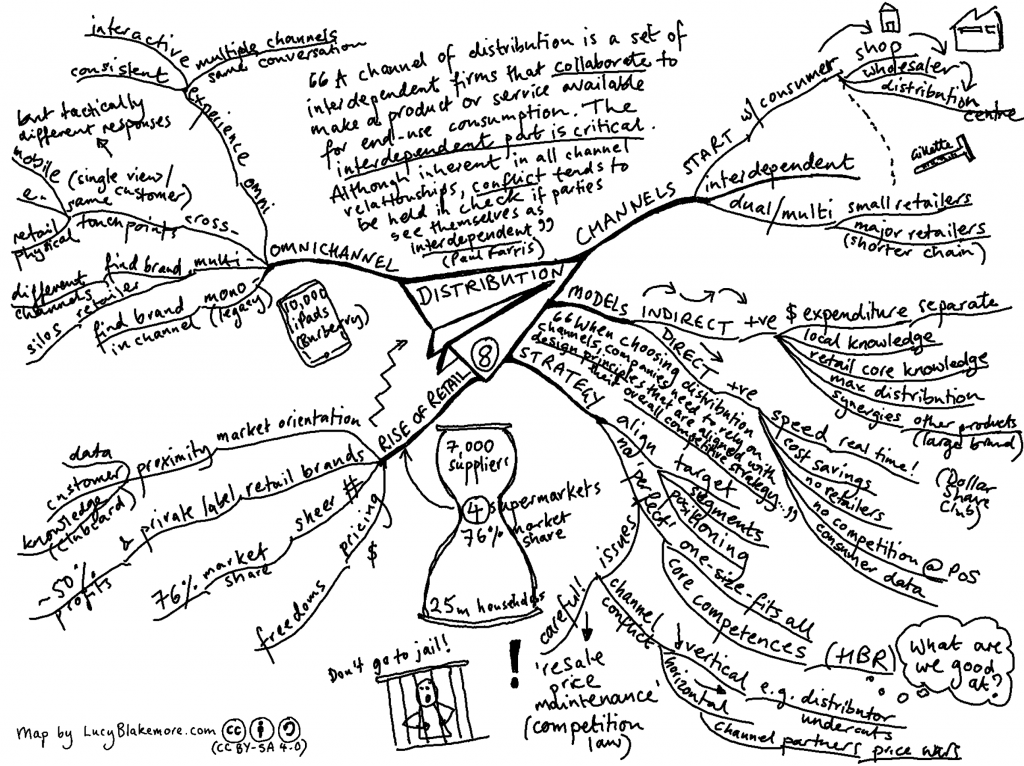 interactive
multiple channels
same conversation
consistent
experience omni
but tactically
different responses
mobile
e.
retail
physical
(single view/
same customer)
touchpoints
cross-
different
channels
find brand
multi-
silos
retailer
find brand
in channel
mono-
(legacy)
OMNICHANNEL
10,000
iPads
(Burberry)
"A channel of distribution is a set of
interdependent firms that collaborate to
make a product or service available
for end-use consumption. The
interdependent part is critical.
Although inherent in all channel
relationships, conflict tends to
be held in check if parties
see themselves as
interdependent"
(Paul Farris)
DISTRIBUTION
8
CHANNELS
START w/ consumer
shop
wholesaler
distribution
centre
Gillette
interdependent
dual/multi
small retailers
major retailers
(shorter chain)
MODELS
INDIRECT
+ve
$ expenditure
separate
local knowledge
retail core knowledge
max distribution
synergies
other products
(large brand)
DIRECT
+ve
speed real time!
cost savings
no retailers
no competition @ PoS
consumer data
(Dollar
Shave
Club)
"When choosing distribution
channels, companies need to rely on
design principles that are aligned with
their overall competitive strategy..."
STRATEGY
align
target
segments
positioning
no 'perfect'
one-size-fits all
core competences
(HBR)
What are
we good
at?
issues
channel
conflict
vertical
e.g. distributor
undercuts
horizontal
channel partners
price wars
careful!
'resale
price
maintenance'
(competition
law)
!
Don't go to jail!
RISE OF RETAIL
market orientation
proximity
data
customer
knowledge
(Clubcard)
retail brands
& private label
~50%
profits
sheer #
market
share
76%
pricing
$
freedoms
7,000
suppliers
4 supermarkets
76% market
share
25m households
Map by LucyBlakemore.com
cc
(CC BY-SA 4.0)